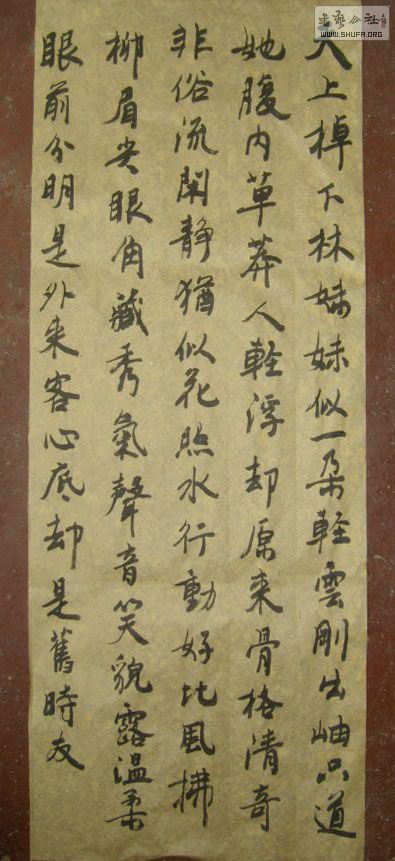 天上掉下林妹妹似一朵輕雲剛出岫只道
她腹内草莽人輕浮却原来骨格清奇
非俗流閑靜猶似花照水行動好比風拂
柳眉尖眼角藏秀氣聲音笑貌露温柔
眼前分明是外来客心底却是舊時友
書藝公社
WWW.SHUFA.ORG